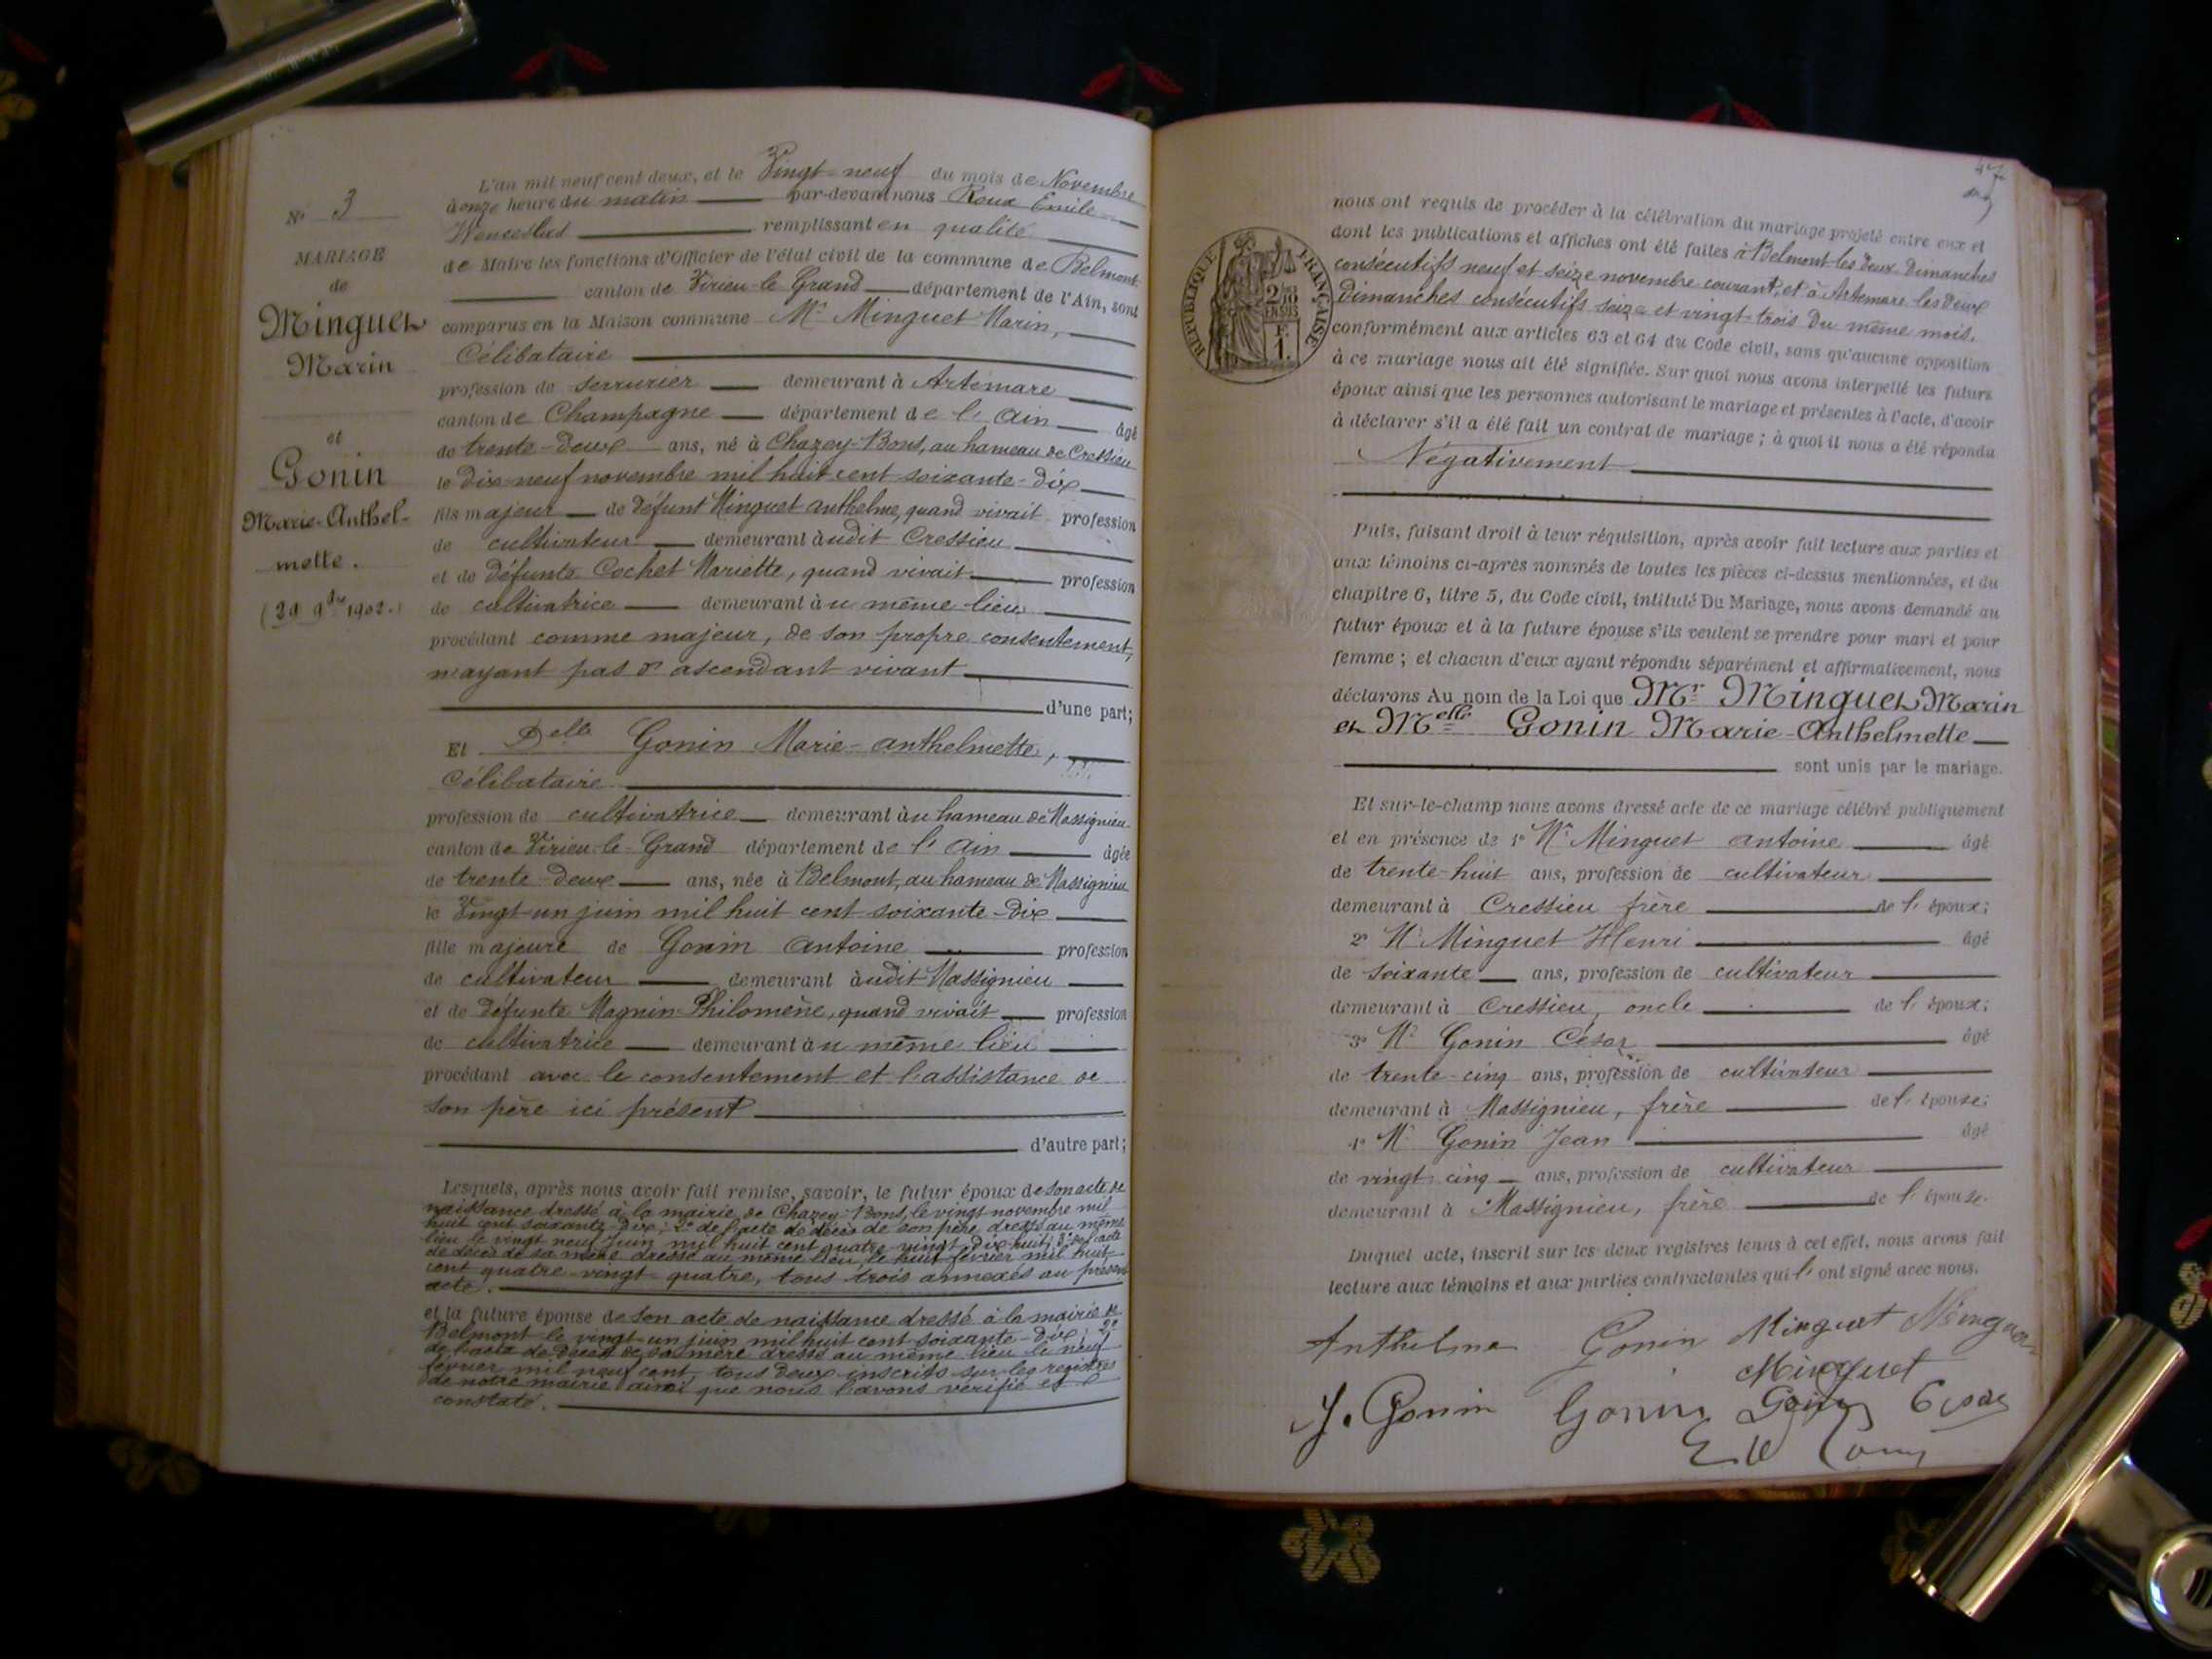 N° 3
MARIAGE
de
Minguet
Marin
et
Gonin
Marie-Anthel-
mette.
(29 9bre 1902.)
L'an mil neuf cent deux, et le Vingt-neuf du mois de Novembre
à onze heure du matin par-devant nous Roux Emile
Wenceslas remplissant en qualité
de Maire les fonctions d'Officier de l'état civil de la commune de Belmont
canton de Virieu-le Grand département de l'Ain, sont
comparus en la Maison commune Mr Minguet Marin,
Célibataire
profession de serrurier demeurant à Artemare
canton de Champagne département de l'Ain âgé
de trente-deux ans, né à Chazey-Bons, au hameau de Cressieu
le dix-neuf novembre mil huit cent soixante-dix
fils majeur de défunt Minguet anthelme, quand vivait profession
de cultivateur demeurant àudit Cressieu
et de défunte Cochet Mariette, quand vivait profession
de cultivatrice demeurant àu même lieu
procédant comme majeur, de son propre consentement,
n'ayant pas d'ascendant vivant
d'une part;
Et Delle Gonin Marie-anthelmette,
Célibataire
profession de cultivatrice demeurant àu hameau de Massignieu
canton de Virieu-le-Grand département de l'Ain âgée
de trente-deux ans, née à Belmont, au hameau de Massignieu
le Vingt-un juin mil huit cent soixante-dix
fille majeure de Gonin Antoine profession
de cultivateur demeurant àudit Massignieu
et de défunte Magnin Philomène, quand vivait profession
de cultivatrice demeurant àu même lieu
procédant avec le consentement et l'assistance de
son père ici présent
d'autre part;
Lesquels, après nous avoir fait remise, savoir, le futur époux de son acte de
naissance dressé à la mairie de Chazey-Bons, le vingt novembre mil
huit cent soixante-dix; 2° de l'acte de décès de son père dressé au même
lieu le vingt neuf Juin mil huit cent quatre-vingt-dix-huit; 3° de l'acte
de décès de sa mère dressé au même lieu, le huit février mil huit
cent quatre-vingt-quatre, tous trois annexés au présent
acte.
et la future épouse de son acte de naissance dressé à la mairie de
Belmont le vingt-un juin mil huit cent soixante-dix; 2°
de l'acte de décès de sa mère dressé au même lieu le neuf
février mil neuf cent tous deux inscrits sur les registres
de notre mairie ainsi que nous l'avons vérifié et
constaté.
RÉPUBLIQUE FRANÇAISE
2/10 EN SUS
F.
1.
nous ont requis de procéder à la célébration du mariage projeté entre eux et
dont les publications et affiches ont été faites à Belmont les deux Dimanches
consécutifs neuf et seize novembre courant, et à Artemare les deux
Dimanches consécutifs seize et vingt-trois du même mois,
conformément aux articles 63 et 64 du Code civil, sans qu'aucune opposition
à ce mariage nous ait été signifiée. Sur quoi nous avons interpellé les futurs
époux ainsi que les personnes autorisant le mariage et présentes à l'acte, d'avoir
à déclarer s'il a été fait un contrat de mariage; à quoi il nous a été répondu
Négativement
Puis, faisant droit à leur réquisition, après avoir fait lecture aux parties et
aux témoins ci-après nommés de toutes les pièces ci-dessus mentionnées, et du
chapitre 6, titre 5, du Code civil, intitulé Du Mariage, nous avons demandé au
futur époux et à la future épouse s'ils veulent se prendre pour mari et pour
femme; et chacun d'eux ayant répondu séparément et affirmativement, nous
déclarons Au nom de la Loi que Mr Minguet Marin
et Melle Gonin Marie-Anthelmette
sont unis par le mariage.
Et sur-le-champ nous avons dressé acte de ce mariage célébré publiquement
et en présence de 1° Mr Minguet Antoine âgé
de trente-huit ans, profession de cultivateur
demeurant à Cressieu frère de l'époux;
2° Mr Minguet Henri âgé
de soixante ans, profession de cultivateur
demeurant à Cressieu, oncle de l'époux;
3° Mr Gonin César âgé
de trente-cinq ans, profession de cultivateur
demeurant à Massignieu, frère de l'épouse;
4° Mr Gonin Jean âgé
de vingt-cinq ans, profession de cultivateur
demeurant à Massignieu, frère de l'épouse.
Duquel acte, inscrit sur les deux registres tenus à cet effet, nous avons fait
lecture aux témoins et aux parties contractantes qui l'ont signé avec nous.
Anthelme Gonin Minguet
Minguet
J. Gonin Gonin Gonin César